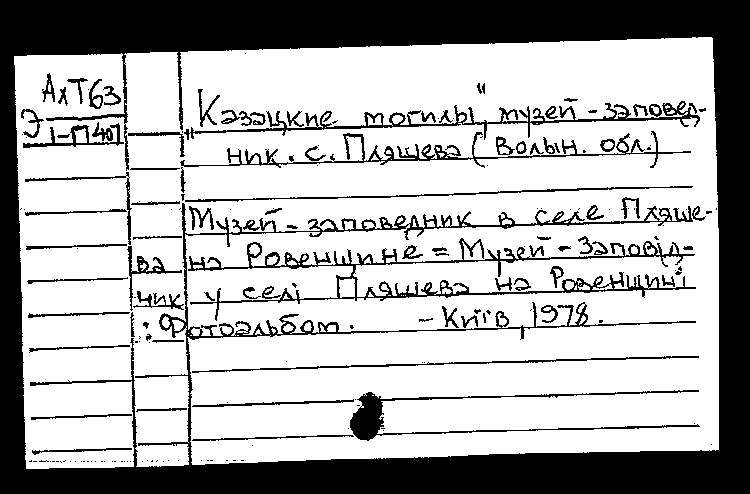 АхТ63
Э 1-П407
„Казацкие могилы", музей-заповед-
ник. с. Пляшева (Волын. обл.)
Музей-заповедник в селе Пляше-
ва на Ровенщине = Музей-Заповід-
ник у селі Пляшева на Ровенщині
: Фотоальбом. - Київ, 1978.